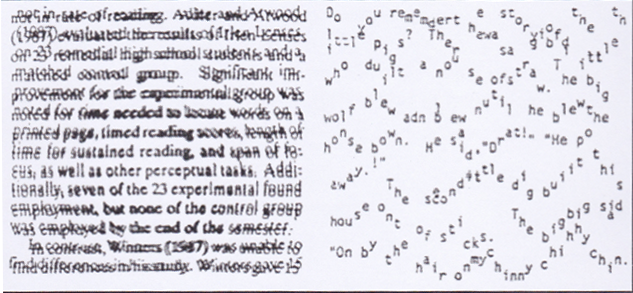 not in rate of reading. Adler and Atwood
(1987) evaluated the results of Irlen Lenses
on 23 remedial high school students and a
matched control group. Significant im-
provement for the experimental group was
noted for time needed to locate words on a
printed page, timed reading scores, length of
time for sustained reading, and span of fo-
cus, as well as other perceptual tasks. Addi-
tionally, seven of the 23 experimental found
employment, but none of the control group
was employed by the end of the semester.
In contrast, Winners (1987) was unable to
find differences in his study. Winners gave 15
Do you rememdert he storyiof the th
ittle pigs? Ther
who duilt a nouse ofstraw. The big
wolf blew adn blew nutil he blewthe
honse bown. He said,"Drat!" "He po
away.!"
The scondlittledig buiit this
house ont of sticks. The bigbig sid
"On by the hair onmychinnychi chin.